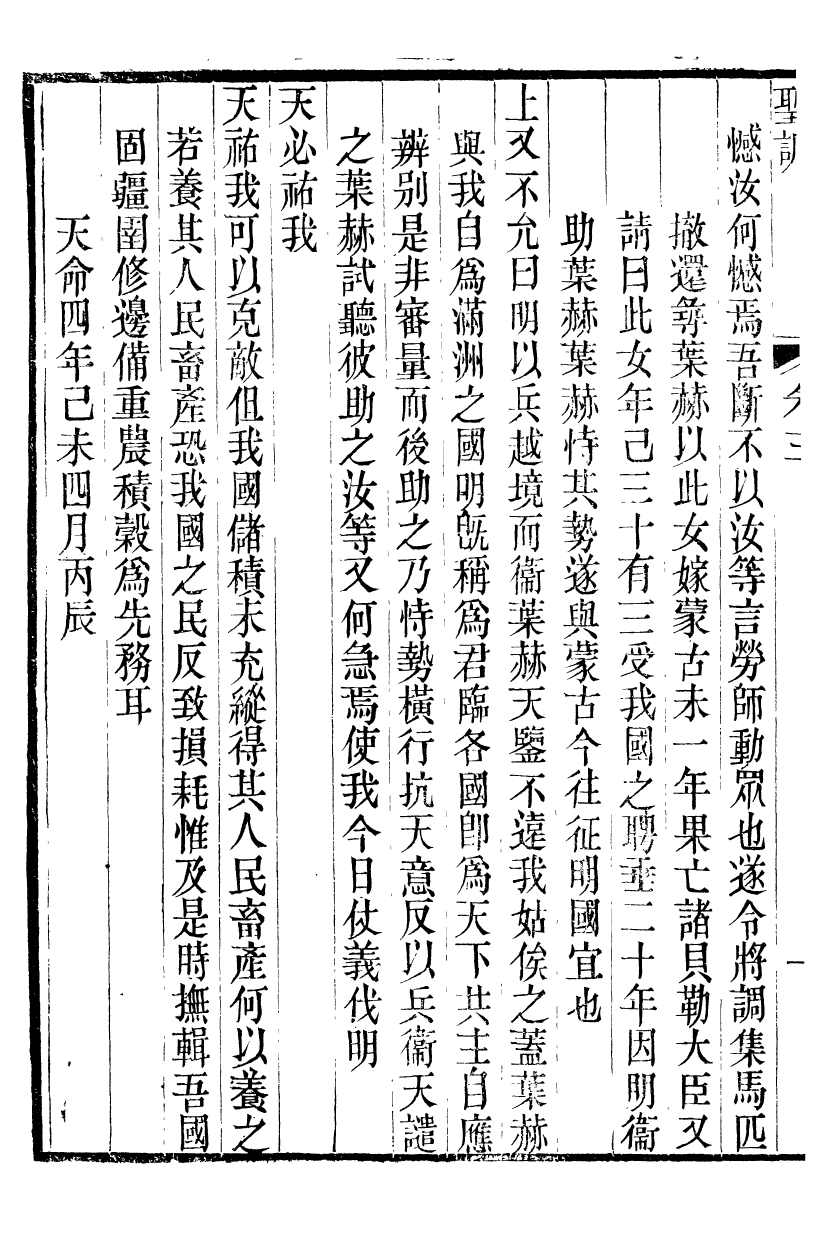 聖訓 卷三 一
憾汝何憾焉吾斷不以汝等言勞師動眾也遂令將調集馬匹
撤還尋葉赫以此女嫁蒙古未一年果亡諸貝勒大臣又
請曰此女年已三十有三受我國之聘垂二十年因明衞
助葉赫葉赫恃其勢遂與蒙古今往征明國宜也
上又不允曰明以兵越境而衞葉赫天鑒不遠我姑俟之蓋葉赫
與我自爲滿洲之國明旣稱爲君臨各國卽爲天下共主自應
辨别是非審量而後助之乃恃勢橫行抗天意反以兵衞天譴
之葉赫試聽彼助之汝等又何急焉使我今日仗義伐明
天必祐我
天祐我可以克敵但我國儲積未充縱得其人民畜產何以養之
若養其人民畜產恐我國之民反致損耗惟及是時撫輯吾國
固疆圉修邊備重農積穀爲先務耳
天命四年己未四月丙辰